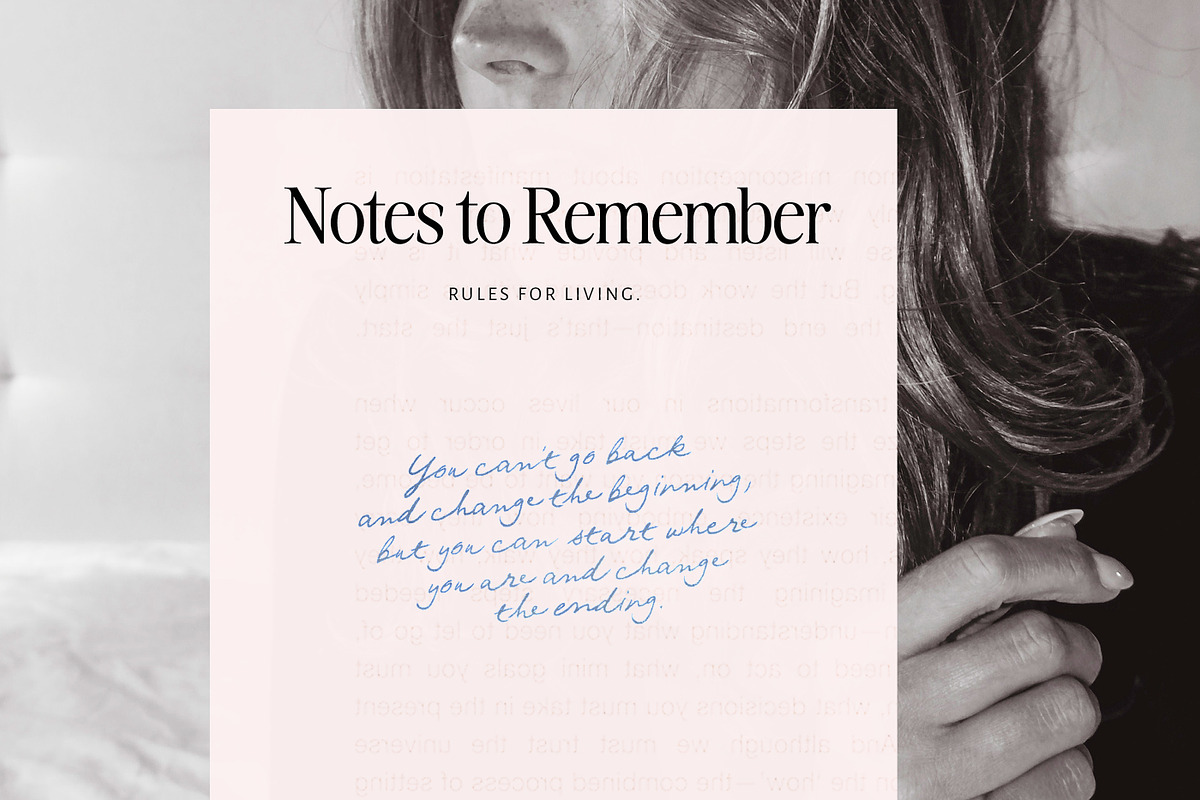 Notes to Remember
RULES FOR LIVING.
You can't go back
and change the beginning,
but you can start where
you are and change
the ending.
misconception about manifestation is
will listen and provide what it is we
But the work simply
the end destination—that's just the start.
transformations in our lives occur when
the steps we must take in order to get
imagining the you want to be
existence, embodying how they
how they speak, how they walk, how they
imagining the necessary steps needed
—understanding what you need to let go of,
need to act on, what mini goals you must
what decisions you must take in the present
And although we must trust the universe
on the 'how'—the combined process of setting